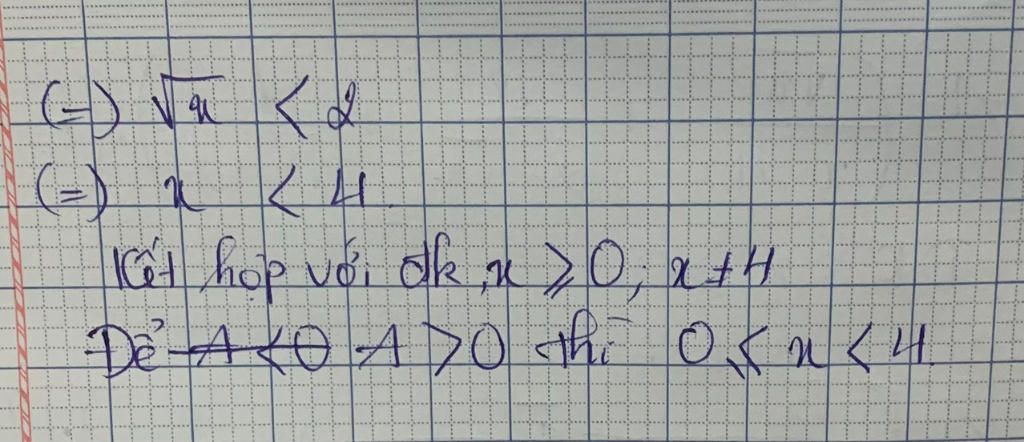 (=) √x < 2
(=) x < 4.
Kết hợp với đk x ⩾ 0; x ≠ 4
Để A < 0 A > 0 thì 0 ⩽ x < 4.